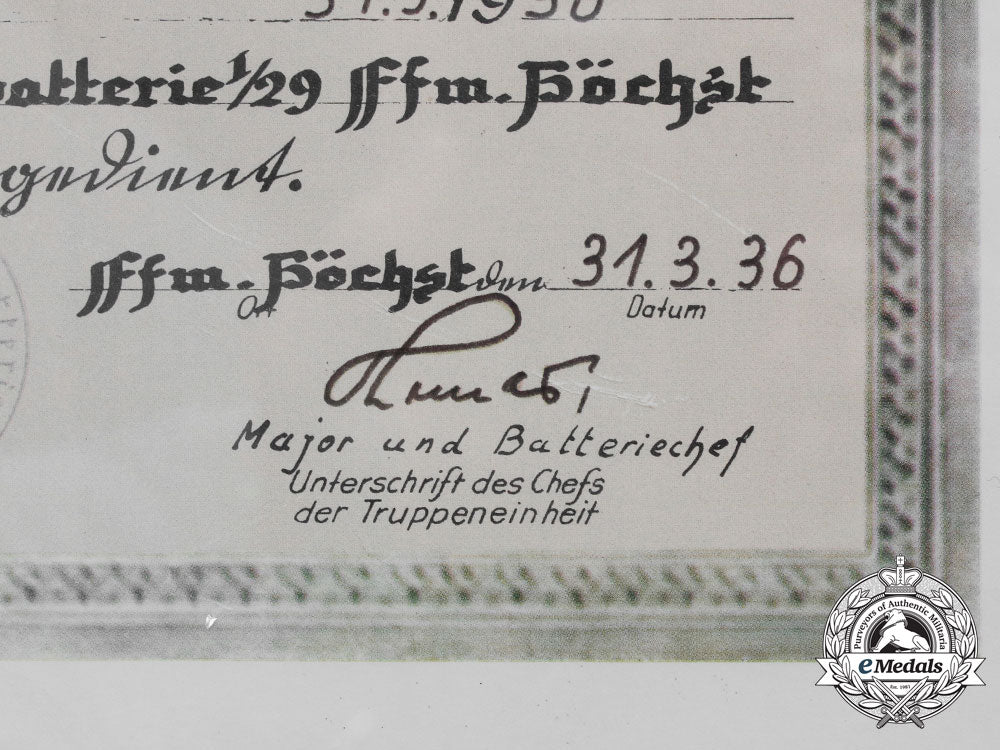 31.3.1936
batterie 1/29 Ffm. Höchst
gedient.
Ffm. Höchst den 31.3.36
Ort Datum
Major und Batteriechef
Unterschrift des Chefs
der Truppeneinheit
Purveyors of Authentic Militaria
eMedals